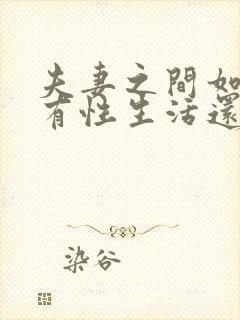 夫妻之間如
有性生活還
染谷